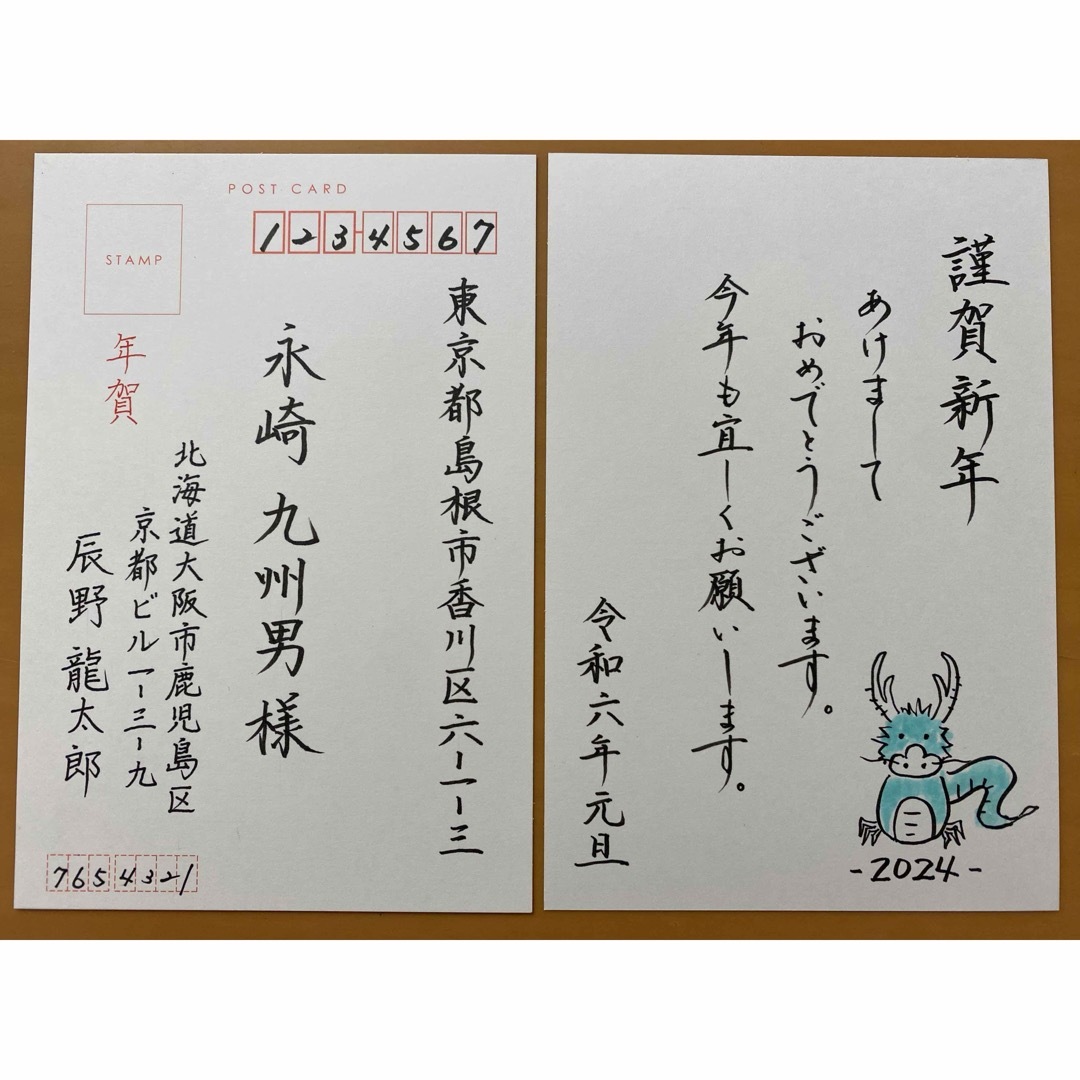 POST CARD
STAMP
1234567
東京都島根市香川区六-一-三
永崎 九州男様
年賀
北海道大阪市鹿児島区
京都ビル一-三-九
辰野 龍太郎
7654321
謹賀新年
あけまして
おめでとうございます。
今年も宜しくお願いします。
令和六年元旦
-2024-